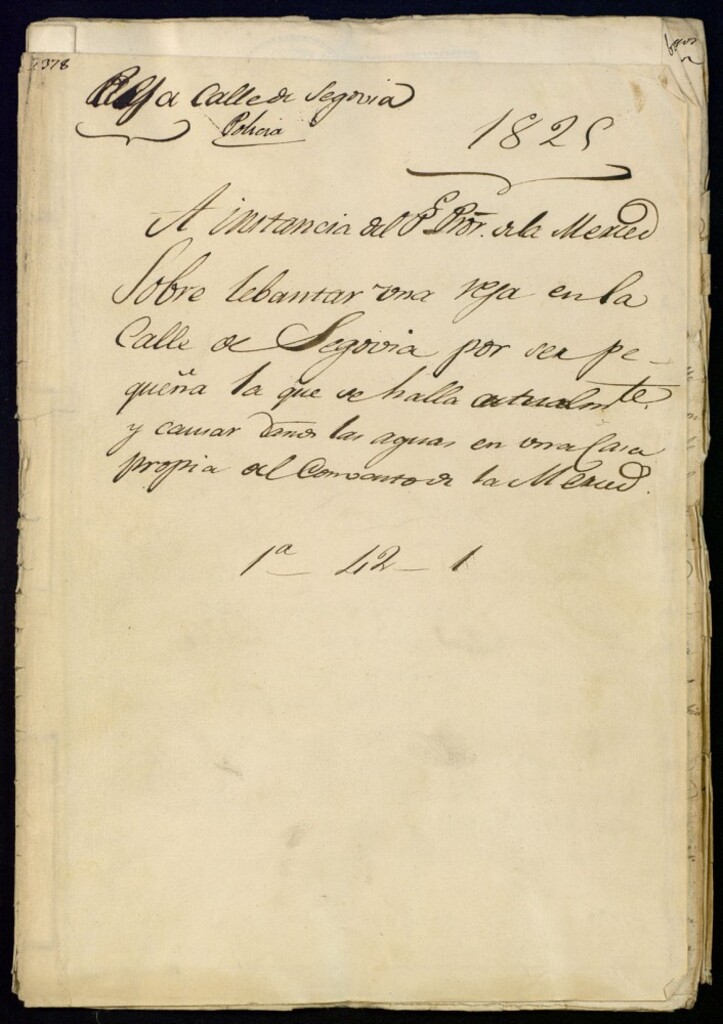 378
Reja Calle de Segovia
Policia
1825
A instancia del P.e Pror. de la Merced
Sobre lebantar una reja en la
Calle de Segovia por ser pe-
queña la que se halla actualmte.
y causar daños las aguas en una Casa
propia del Convento de la Merced.
1a - 42 - 1